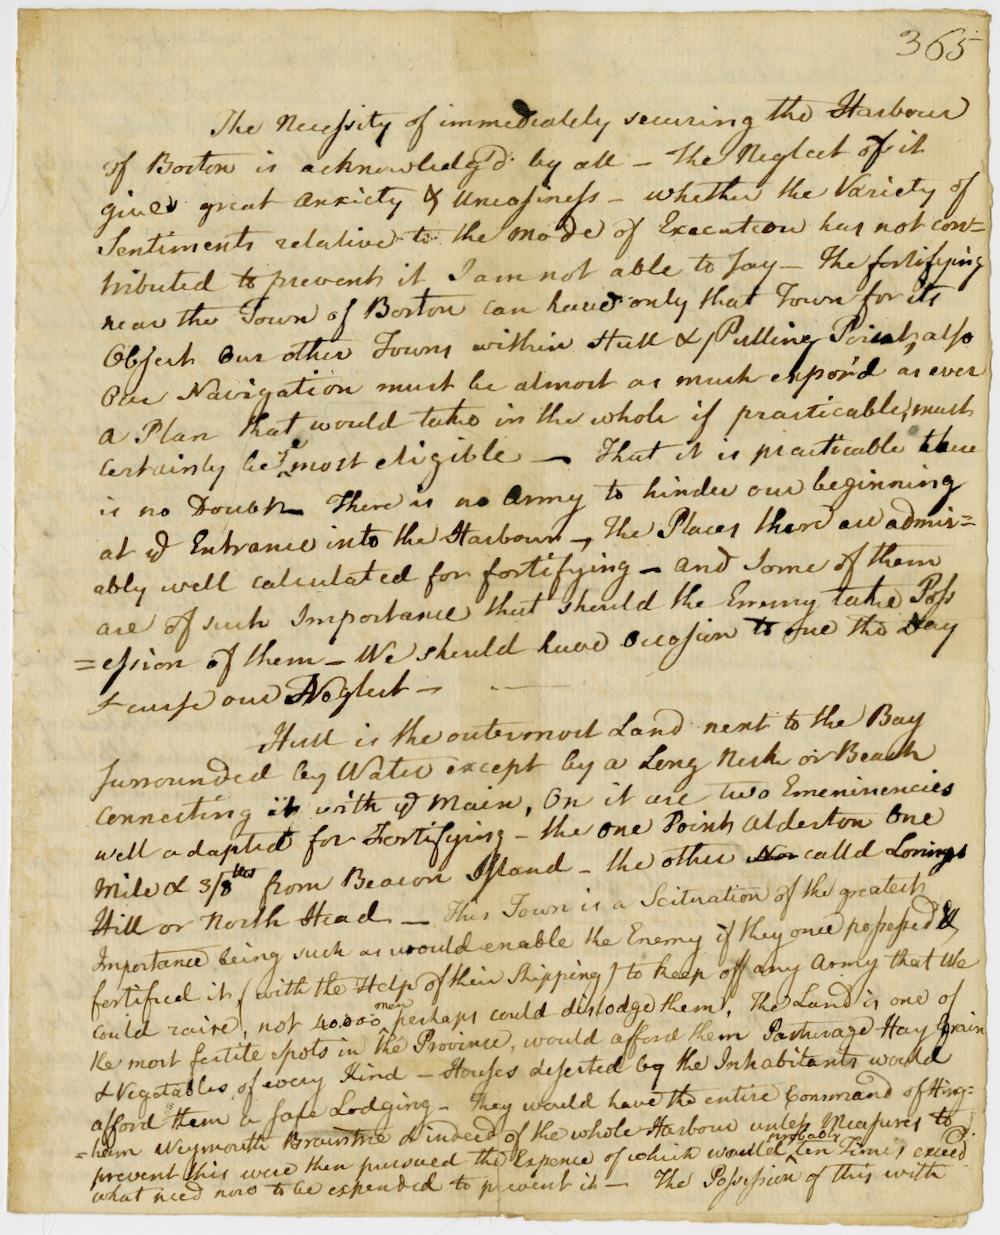 365
The Necessity of immediately securing the Harbour
of Boston is acknowledg'd by all – The Neglect of it
gives great Anxiety & Uneasiness – whether the Variety of
Sentiments relative to the Mode of Execution has not con=
tributed to prevent it I am not able to say – The fortifying
near the Town of Boston can have only that Town for its
Object Our other Towns within Hull & Pulling Point, also
Our Navigation must be almost as much expos'd as ever
A Plan that would take in the whole if practicable, must
certainly be ye most eligible – That it is practicable there
is no Doubt – There is no Army to hinder our beginning
at ye Entrance into the Harbour –, The Places there are admir=
ably well calculated for fortifying – and some of them
are of such Importance that should the Enemy take Poss
=ession of them – We should have Occasion to rue the Day
& curse our Neglect –
Hull is the outermost Land next to the Bay
surrounded by Water except by a Long Neck or Beach
connecting it with ye Main, On it are two Emeninencies
well adapted for Fortifying – the one Point Alderton One
Mile & 3/8ths from Beacon Island – the other Nor calld Lorings
Hill or North Head – This Town is a Scituation of the greatest
Importance being such as would enable the Enemy if they once possessed &
fortified it (with the Help of their Shipping) to keep off any Army that We
could raise, not 40.000 men perhaps could dislodge them, The Land is one of
the most fertile spots in the Province, would afford them Pasturage Hay Grain
& Vegatables of every Kind – Houses deserted by the Inhabitants would
afford them a safe Lodging – They would have the entire Command of Hing=
=ham Weymouth Braintree & indeed of the whole Harbour unless Measures to
prevent this were then pursued the Expence of which would probably ten Times exceed
what need now to be expended to prevent it – The Possession of this with